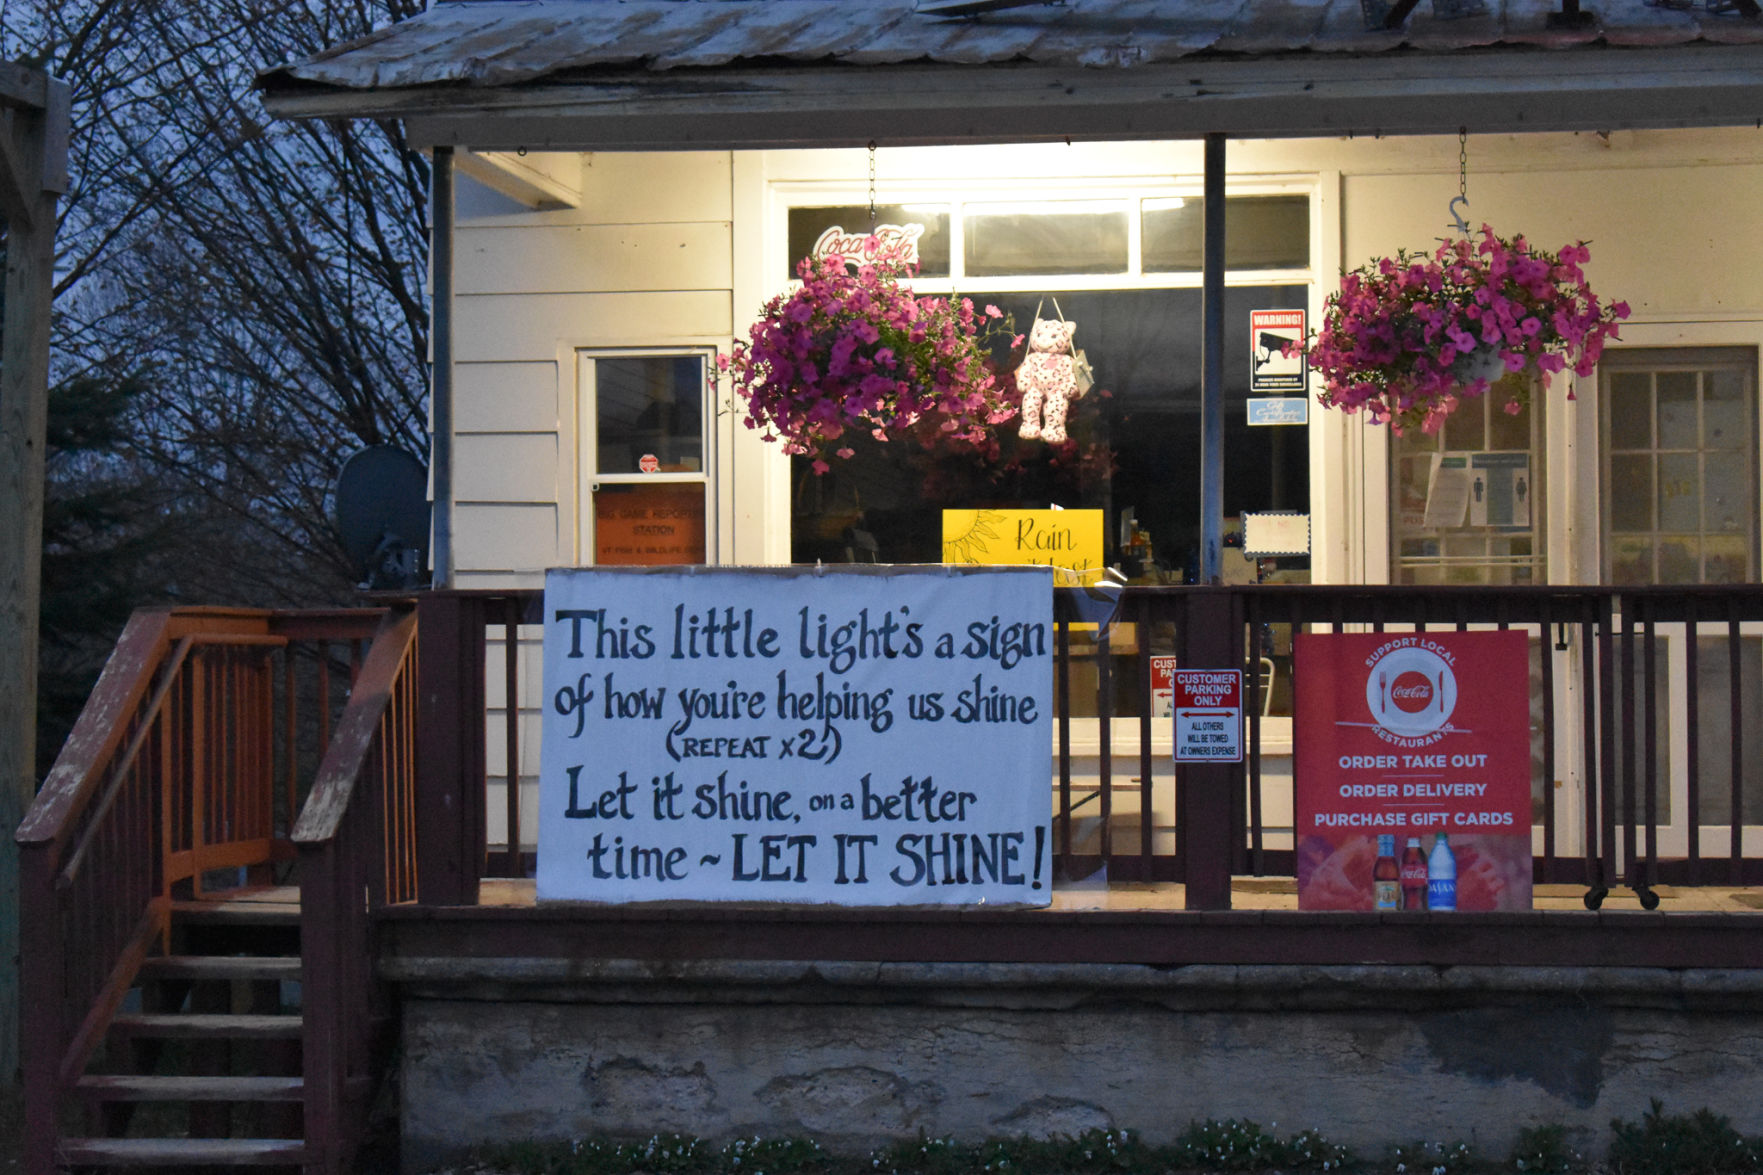 Coca-Cola
WARNING!
BIG GAME REPORTING
STATION
VT FISH & WILDLIFE DEPT
Rain
This little light's a sign
of how you're helping us shine
(REPEAT x2)
Let it shine, on a better
time ~ LET IT SHINE!
CUSTOMER
PARKING
ONLY
ALL OTHERS
WILL BE TOWED
AT OWNERS EXPENSE
SUPPORT LOCAL
Coca-Cola
RESTAURANTS
ORDER TAKE OUT
ORDER DELIVERY
PURCHASE GIFT CARDS
Coca-Cola
DASANI